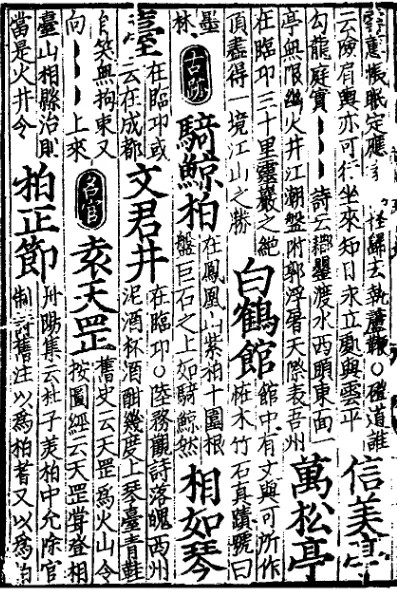 惠帳眠定應
怪歸去執鞭○磴道誰
云險肩輿亦可行坐來知日永立處與雲平
信美亭
勾龍庭實
詩云
渡水西頭東面一
亭無限幽火井江潮盤附郭浮屠天際表吾州
萬松亭
在臨邛三十里靈巖之絕
頂盡得一境江山之勝
白鶴館
館中有文與可所作
枯木竹石真蹟號曰
墨
林
古跡
騎鯨柏
在鳳凰山紫柏十圍根
盤巨石之上如騎鯨然
相如琴
臺
在臨邛或
云在成都
文君井
在臨邛○陸務觀詩落魄西州
泥酒杯酒酣幾度上琴臺青鞋
自笑無拘束又
向
上來
名宦
袁天罡
舊史云天罡爲火山令
按圖經云天罡嘗登相
臺山相縣治則
當是火井令
柏正節
陽集云杜子美柏中允除官
制詩舊注以爲柏耆又以爲柏